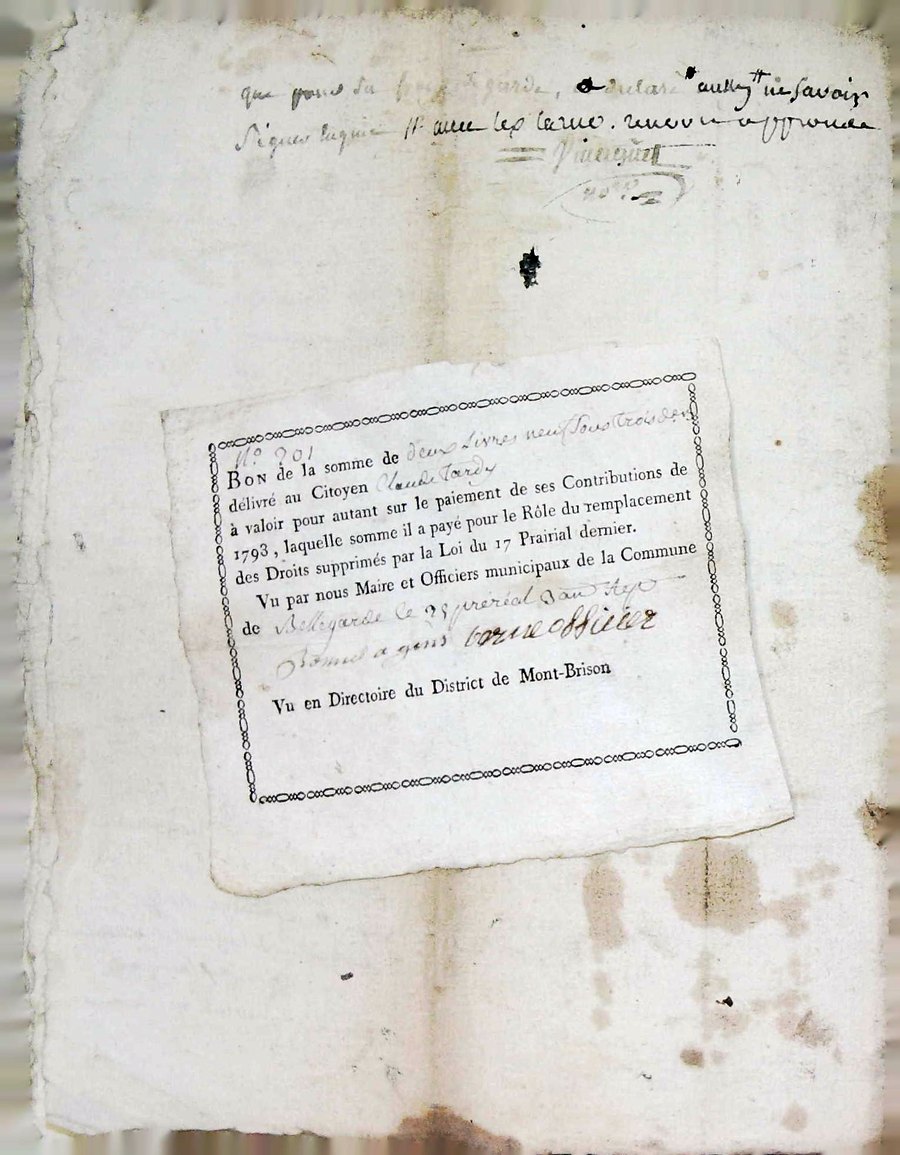 que pour sa garde, declaré ne savoir
signer enquis # avec les renvoi approuvé
N° 201
BON de la somme de deux Livres neuf sous trois den
délivré au Citoyen Claude Tardy
à valoir pour autant sur le paiement de ses Contributions de
1793, laquelle somme il a payé pour le Rôle du remplacement
des Droits supprimés par la Loi du 17 Prairial dernier.
Vu par nous Maire et Officiers municipaux de la Commune
de Bellegarde le 25 prereal 3 an
agent officier
Vu en Directoire du District de Mont-Brison